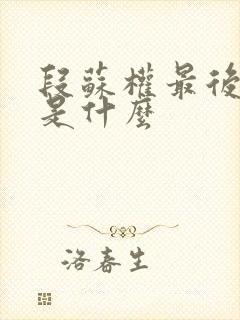 段蘇權最後
是什麼
洛春生